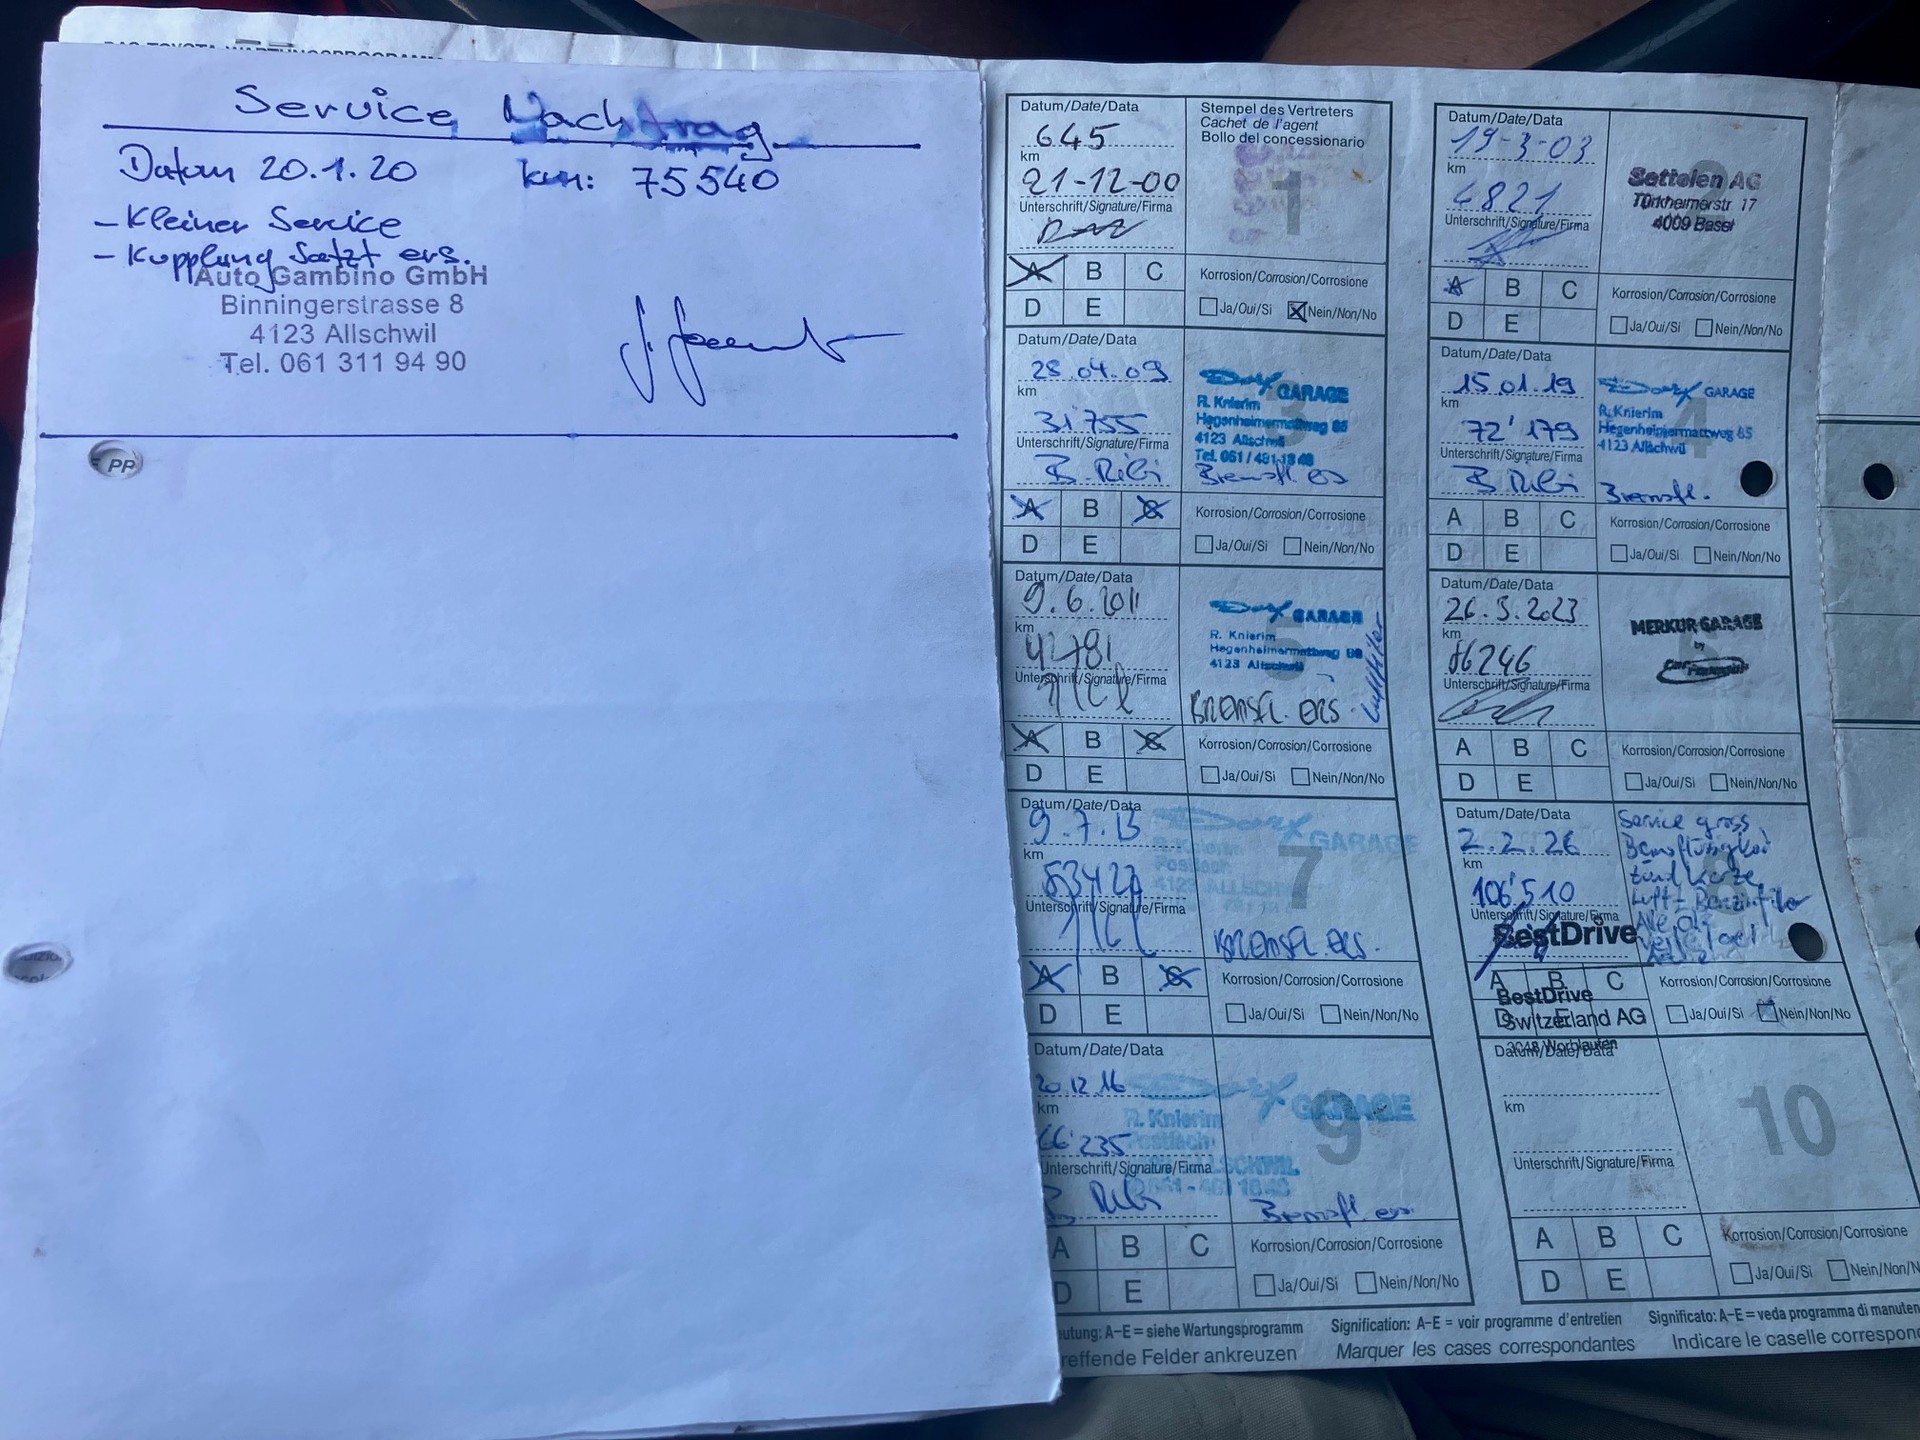 DAS TOYOTA-WARTUNGSPROGRAMM
Service Nachtrag
Datum 20.1.20 km: 75540
- Kleiner Service
- Kupplung Satzt ers.
Auto Gambino GmbH
Binningerstrasse 8
4123 Allschwil
Tel. 061 311 94 90
PP
Datum/Date/Data
645
km
21-12-00
Unterschrift/Signature/Firma
Stempel des Vertreters
Cachet de l'agent
Bollo del concessionario
1
A B C
D E
Korrosion/Corrosion/Corrosione
Ja/Oui/Si Nein/Non/No
Datum/Date/Data
19-3-03
km
4821
Unterschrift/Signature/Firma
2
Settelen AG
Türkheimerstr. 17
4009 Basel
A B C
D E
Korrosion/Corrosion/Corrosione
Ja/Oui/Si Nein/Non/No
Datum/Date/Data
28.04.09
km
31'755
Unterschrift/Signature/Firma
B. Ribi
3
GARAGE
R. Knierim
Hegenheimermattweg 85
4123 Allschwil
Tel. 061/481 18 48
Bremsfl. ers
A B C
D E
Korrosion/Corrosion/Corrosione
Ja/Oui/Si Nein/Non/No
Datum/Date/Data
15.01.19
km
72'179
Unterschrift/Signature/Firma
B Ribi
4
GARAGE
R. Knierim
Hegenheimermattweg 85
4123 Allschwil
Bremsfl.
A B C
D E
Korrosion/Corrosion/Corrosione
Ja/Oui/Si Nein/Non/No
Datum/Date/Data
9.6.2011
km
42781
Unterschrift/Signature/Firma
5
GARAGE
R. Knierim
Hegenheimermattweg 85
4123 Allschwil
Bremsfl. ers.
Luftfilter
A B C
D E
Korrosion/Corrosion/Corrosione
Ja/Oui/Si Nein/Non/No
Datum/Date/Data
26.5.2023
km
86246
Unterschrift/Signature/Firma
MERKUR GARAGE
by
A B C
D E
Korrosion/Corrosion/Corrosione
Ja/Oui/Si Nein/Non/No
Datum/Date/Data
9.7.13
km
53427
Unterschrift/Signature/Firma
7
GARAGE
R. Knierim
Postfach
4123 ALLSCHWIL
Bremsfl. ers.
A B C
D E
Korrosion/Corrosion/Corrosione
Ja/Oui/Si Nein/Non/No
Datum/Date/Data
2.2.26
km
106'510
Unterschrift/Signature/Firma
8
Service gross
Bremsflüssigkeit
Zündkerze
Luft-Benzinfilter
BestDrive
A B C
D E
BestDrive
Switzerland AG
3048 Worblaufen
Korrosion/Corrosion/Corrosione
Ja/Oui/Si Nein/Non/No
Datum/Date/Data
20.12.16
km
66'235
Unterschrift/Signature/Firma
B Ribi
9
GARAGE
R. Knierim
Postfach
ALLSCHWIL
Bremsfl. ers.
A B C
D E
Korrosion/Corrosion/Corrosione
Ja/Oui/Si Nein/Non/No
Datum/Date/Data
km
Unterschrift/Signature/Firma
10
A B C
D E
Korrosion/Corrosion/Corrosione
Ja/Oui/Si Nein/Non/N
utung: A–E = siehe Wartungsprogramm Signification: A–E = voir programme d'entretien Significato: A–E = veda programma di manuten
reffende Felder ankreuzen Marquer les cases correspondantes Indicare le caselle correspon